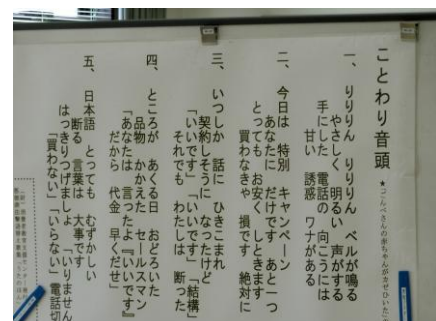 ことわり音頭
★こんぺさんの赤ちゃんがかぜひいた
一、りりりん りりりん ベルが鳴る
やさしく 明るい 声がする
手にした 電話の 向こうには
甘い 誘惑 ワナがある
二、今日は 特別 キャンペーン
あなたに だけです あと一つ
とっても お安く しときます
買わなきゃ 損です 絶対に
三、いつしか 話に ひきこまれ
契約しそうに なったけど
「いいです」「いいです」「結構」
それでも わたしは 断った
四、ところが あくる日 おどろいた
品物 かかえた セールスマン
「あなたは 言ったよ『いいです』
だから 代金 早くだせ」
五、日本語 とっても むずかしい
断る 言葉は 大事です
はっきりつげましょ 「いりません
「買わない」「いらない」電話切